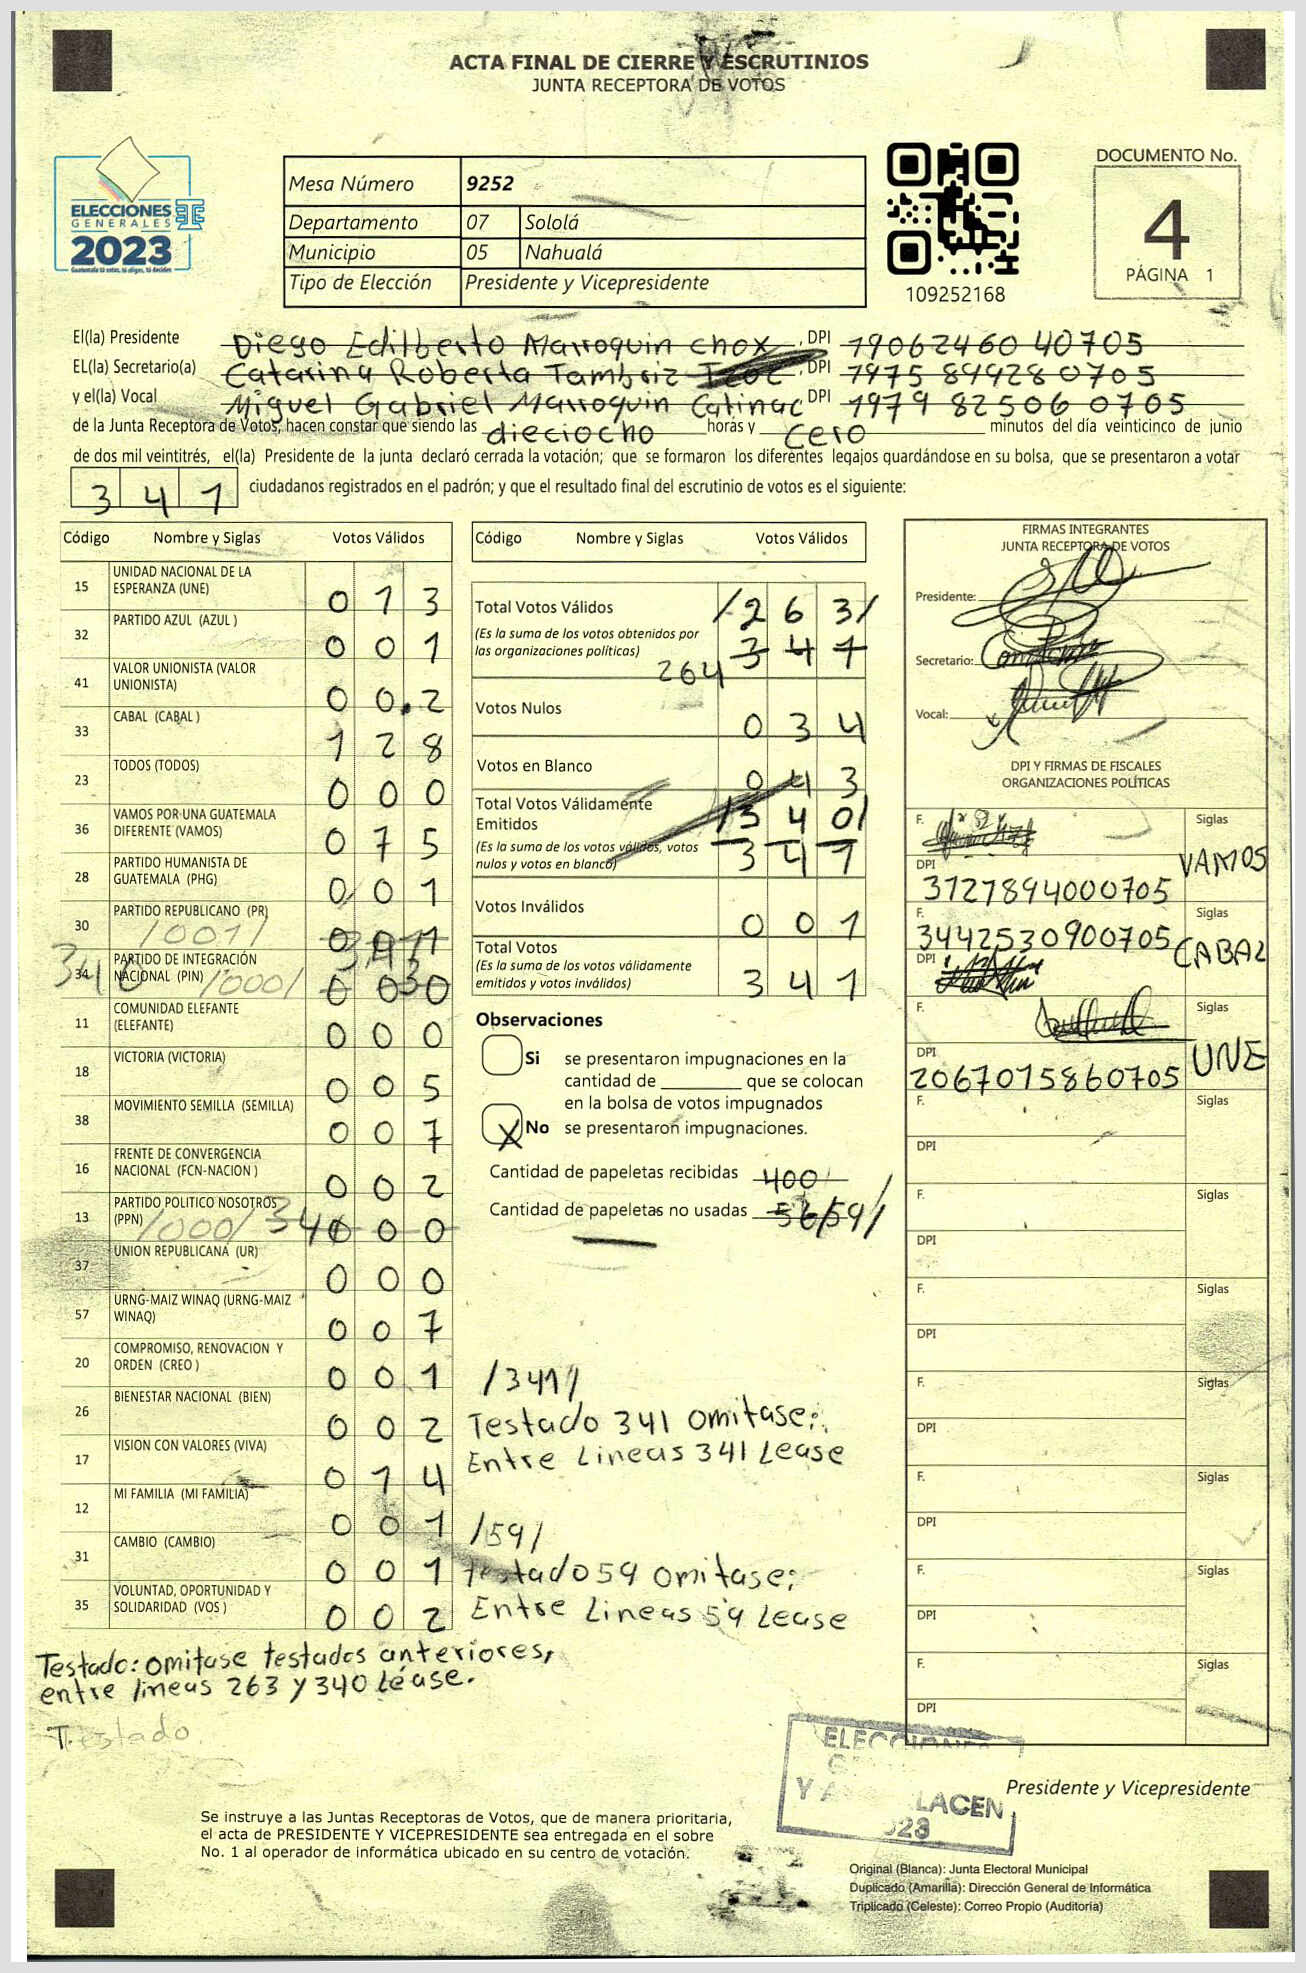 ACTA FINAL DE CIERRE Y ESCRUTINIOS
JUNTA RECEPTORA DE VOTOS
ELECCIONES
GENERALES
2023
Guatemala tú votas, tú eliges, tú decides
Mesa Número 9252
Departamento 07 Sololá
Municipio 05 Nahualá
Tipo de Elección Presidente y Vicepresidente
109252168
DOCUMENTO No.
4
PÁGINA 1
El(la) Presidente Diego Edilberto Marroquin chox, DPI 19062460 40705
EL(la) Secretario(a) Catarina Roberta Tambriz, DPI 1975 899280705
y el(la) Vocal Miguel Gabriel Marroquin Catinac DPI 1979 82506 0705
de la Junta Receptora de Votos, hacen constar que siendo las dieciocho horas y cero minutos del día veinticinco de junio
de dos mil veintitrés, el(la) Presidente de la junta declaró cerrada la votación; que se formaron los diferentes legajos guardándose en su bolsa, que se presentaron a votar
341 ciudadanos registrados en el padrón; y que el resultado final del escrutinio de votos es el siguiente:
Código Nombre y Siglas Votos Válidos
15 UNIDAD NACIONAL DE LA ESPERANZA (UNE) 0 1 3
32 PARTIDO AZUL (AZUL ) 0 0 1
41 VALOR UNIONISTA (VALOR UNIONISTA) 0 0 2
33 CABAL (CABAL ) 1 2 8
23 TODOS (TODOS) 0 0 0
36 VAMOS POR UNA GUATEMALA DIFERENTE (VAMOS) 0 7 5
28 PARTIDO HUMANISTA DE GUATEMALA (PHG) 0 0 1
30 PARTIDO REPUBLICANO (PR) /001/ 0 0 1
34 PARTIDO DE INTEGRACIÓN NACIONAL (PIN) /000/ 0 0 0
340
11 COMUNIDAD ELEFANTE (ELEFANTE) 0 0 0
18 VICTORIA (VICTORIA) 0 0 5
38 MOVIMIENTO SEMILLA (SEMILLA) 0 0 7
16 FRENTE DE CONVERGENCIA NACIONAL (FCN-NACION ) 0 0 2
13 PARTIDO POLITICO NOSOTROS (PPN) /000/ 0 0 0
37 UNION REPUBLICANA (UR) 0 0 0
57 URNG-MAIZ WINAQ (URNG-MAIZ WINAQ) 0 0 7
20 COMPROMISO, RENOVACION Y ORDEN (CREO ) 0 0 1
26 BIENESTAR NACIONAL (BIEN) 0 0 2
17 VISION CON VALORES (VIVA) 0 1 4
12 MI FAMILIA (MI FAMILIA) 0 0 1
31 CAMBIO (CAMBIO) 0 0 1
35 VOLUNTAD, OPORTUNIDAD Y SOLIDARIDAD (VOS ) 0 0 2
Testado: omitase testados anteriores,
entre líneas 263 y 340 Léase.
Testado
Código Nombre y Siglas Votos Válidos
Total Votos Válidos /2 6 3/
(Es la suma de los votos obtenidos por
las organizaciones políticas) 3 4 1
264
Votos Nulos 0 3 4
Votos en Blanco 0 4 3
Total Votos Válidamente
Emitidos /3 4 0/
(Es la suma de los votos válidos, votos
nulos y votos en blanco) 3 4 1
Votos Inválidos 0 0 1
Total Votos
(Es la suma de los votos válidamente
emitidos y votos inválidos) 3 4 1
Observaciones
Si se presentaron impugnaciones en la
cantidad de ________ que se colocan
en la bolsa de votos impugnados
X No se presentaron impugnaciones.
Cantidad de papeletas recibidas 400
Cantidad de papeletas no usadas /59/
/341/
Testado 341 omitase;
Entre Lineas 341 Lease
/59/
Testado 59 omitase;
Entre Lineas 59 Lease
FIRMAS INTEGRANTES
JUNTA RECEPTORA DE VOTOS
Presidente:
Secretario:
Vocal:
DPI Y FIRMAS DE FISCALES
ORGANIZACIONES POLÍTICAS
F. Siglas
VAMOS
DPI
3127894000705
F. Siglas
3442530900705 CABAL
DPI
F. Siglas
UNE
DPI
2067015860705
F. Siglas
DPI
F. Siglas
DPI
F. Siglas
DPI
F. Siglas
DPI
F. Siglas
DPI
F. Siglas
DPI
F. Siglas
DPI
ELECCIONES
LACEN
Presidente y Vicepresidente
Se instruye a las Juntas Receptoras de Votos, que de manera prioritaria,
el acta de PRESIDENTE Y VICEPRESIDENTE sea entregada en el sobre
No. 1 al operador de informática ubicado en su centro de votación.
Original (Blanca): Junta Electoral Municipal
Duplicado (Amarilla): Dirección General de Informática
Triplicado (Celeste): Correo Propio (Auditoría)